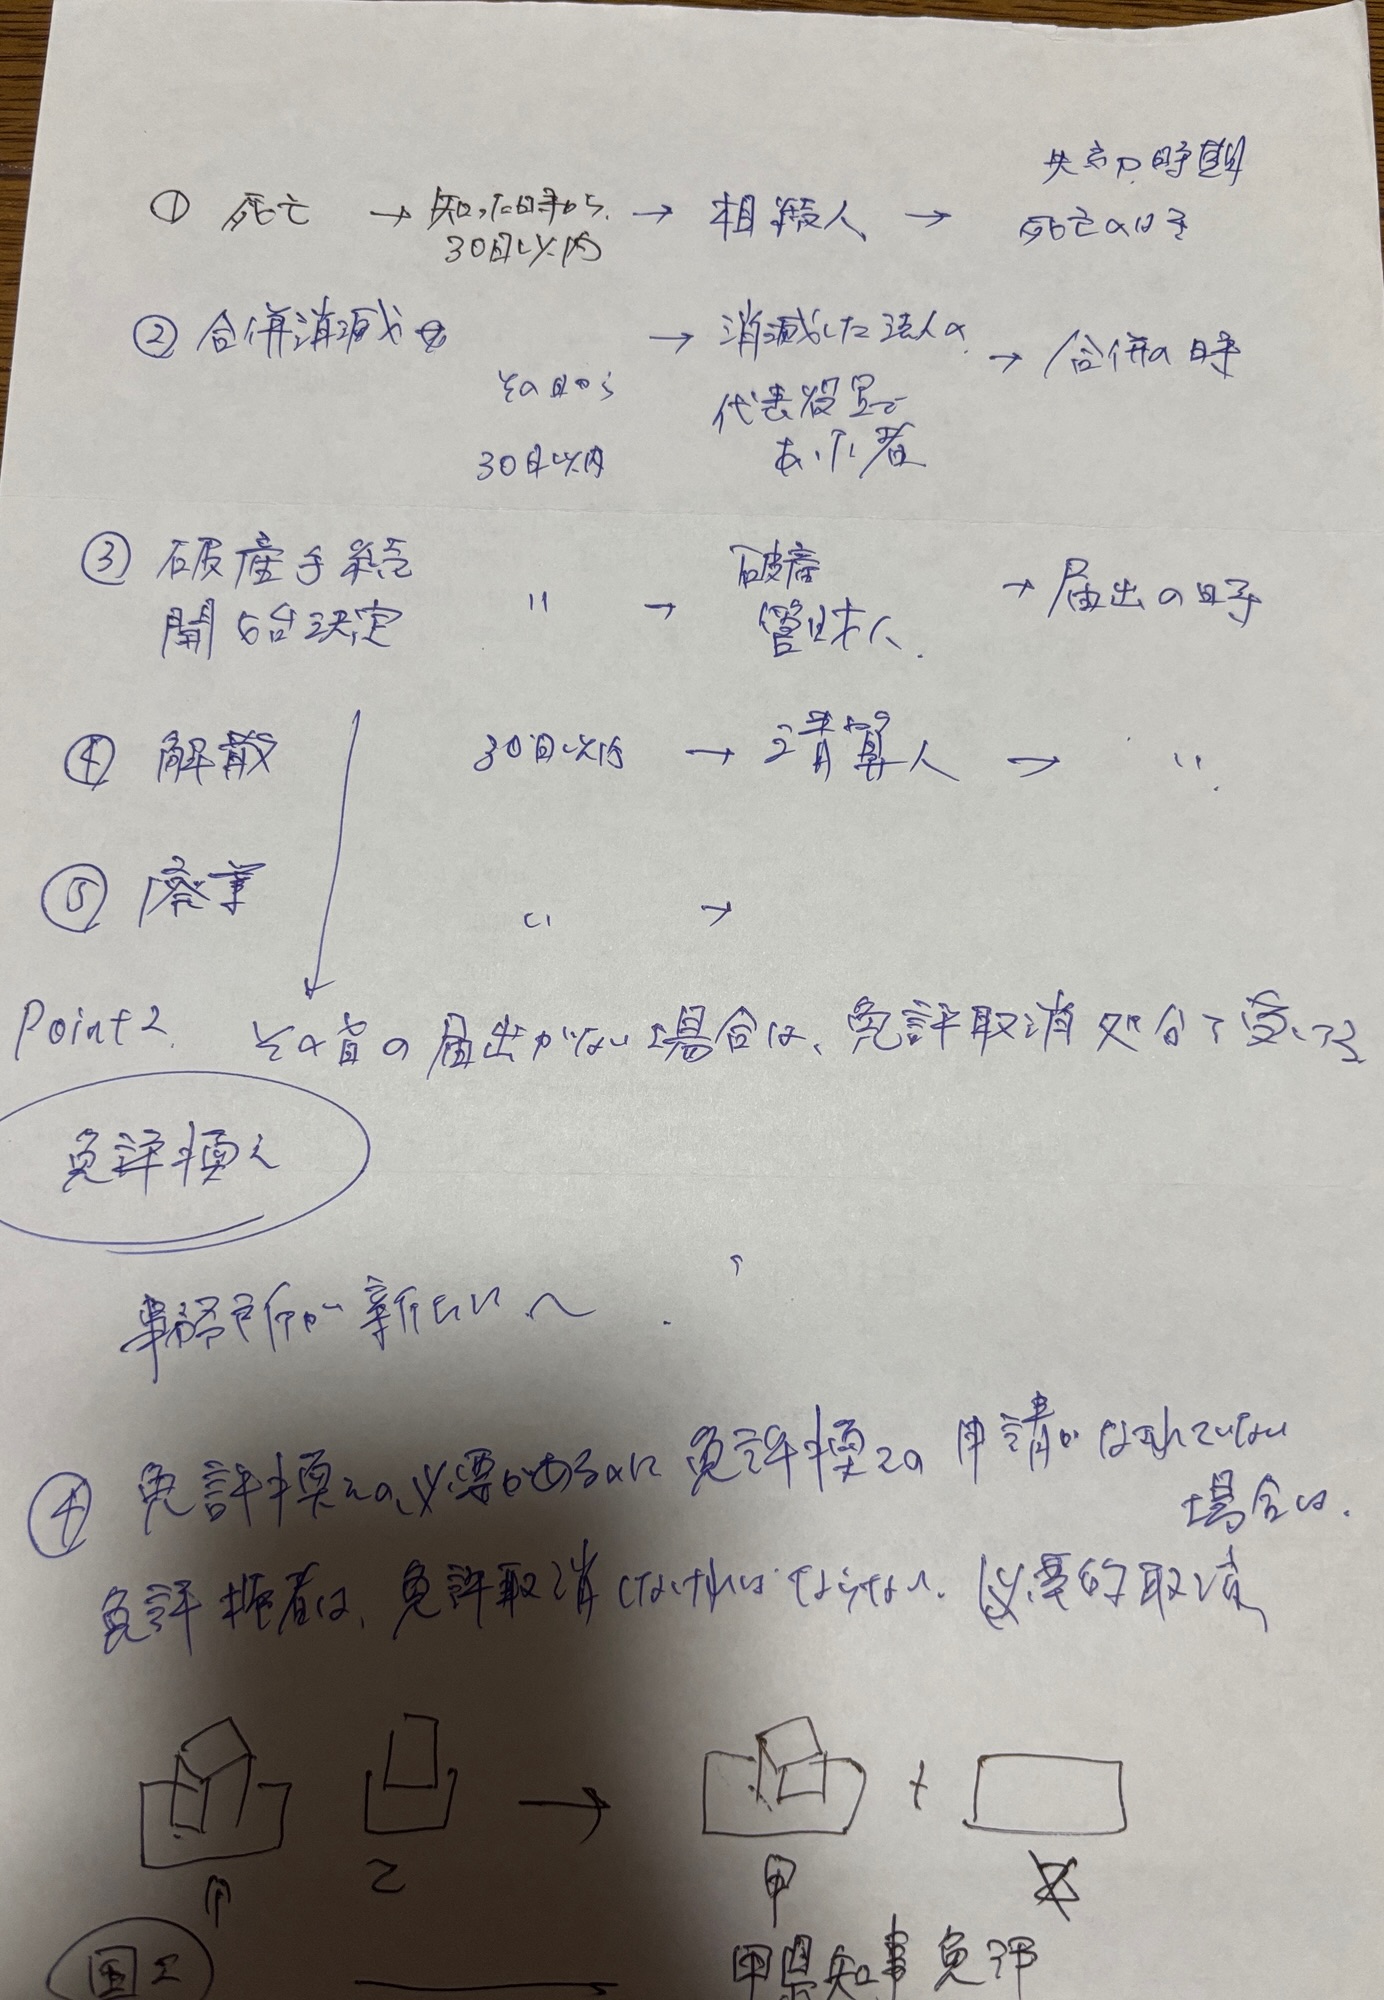 失効の時期
① 死亡 → 知った時から → 相続人 → 死亡の時
30日以内
② 合併消滅 → 消滅した法人の → 合併の時
その日から 代表役員で
30日以内 あった者
③ 破産手続 破産 → 届出の時
開始決定 〃 → 管財人
④ 解散 30日以内 → 清算人 → 〃
⑤ 廃業 〃 →
Point 2 その旨の届出がない場合は、免許取消処分を受ける
免許換え
事務所が新たに
④ 免許換えの必要があるのに免許換えの申請がなされていない
場合は、
免許権者は、免許取消しなければならない。必要的取消
甲 乙 → 甲 + 乙
国土 甲県知事免許